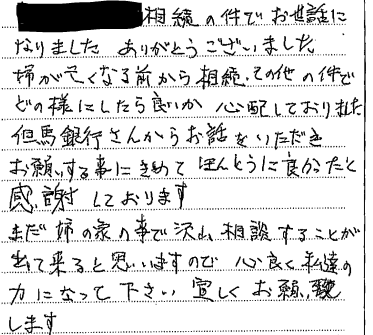 相続の件でお世話に
なりました ありがとうございました
姉が亡くなる前から相続、その他の件で
どの様にしたら良いか 心配しておりました
但馬銀行さんからお話をいただき
お願いする事にきめて ほんとうに良かったと
感謝しております
まだ姉の家の事で沢山相談することが
出て来ると思いますので 心良く私達の
力になって下さい 宜しくお願い致
します